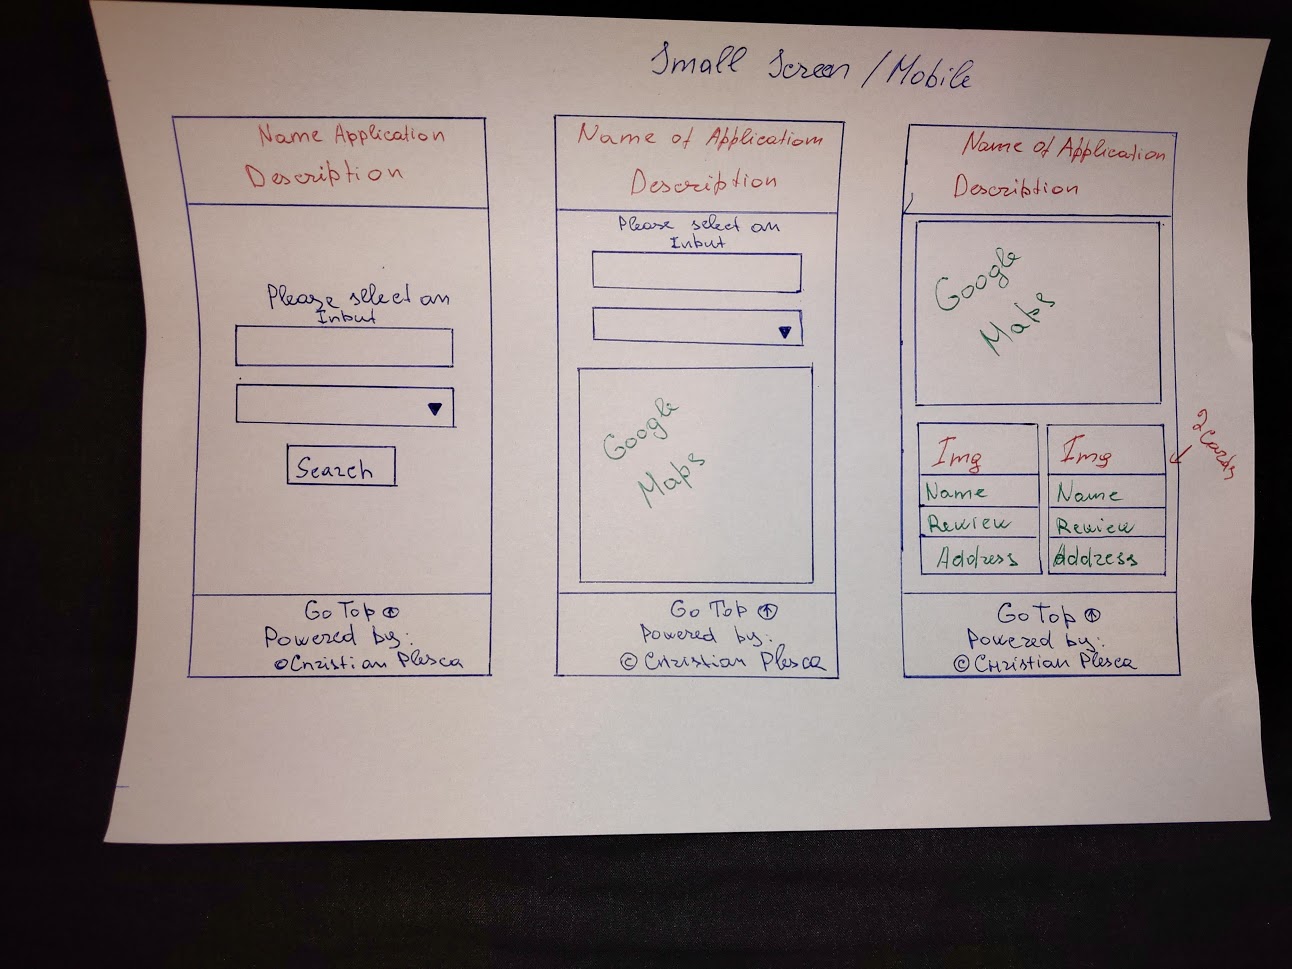 Small Screen / Mobile
Name Application
Description
Please select an
Input
Search
Go Top
Powered by:
© Christian Plesca
Name of Application
Description
Please select an
Input
Google
Maps
Go Top
Powered by:
© Christian Plesca
Name of Application
Description
Google
Maps
2 Cards
Img Img
Name Name
Review Review
Address Address
Go Top
Powered by:
© Christian Plesca